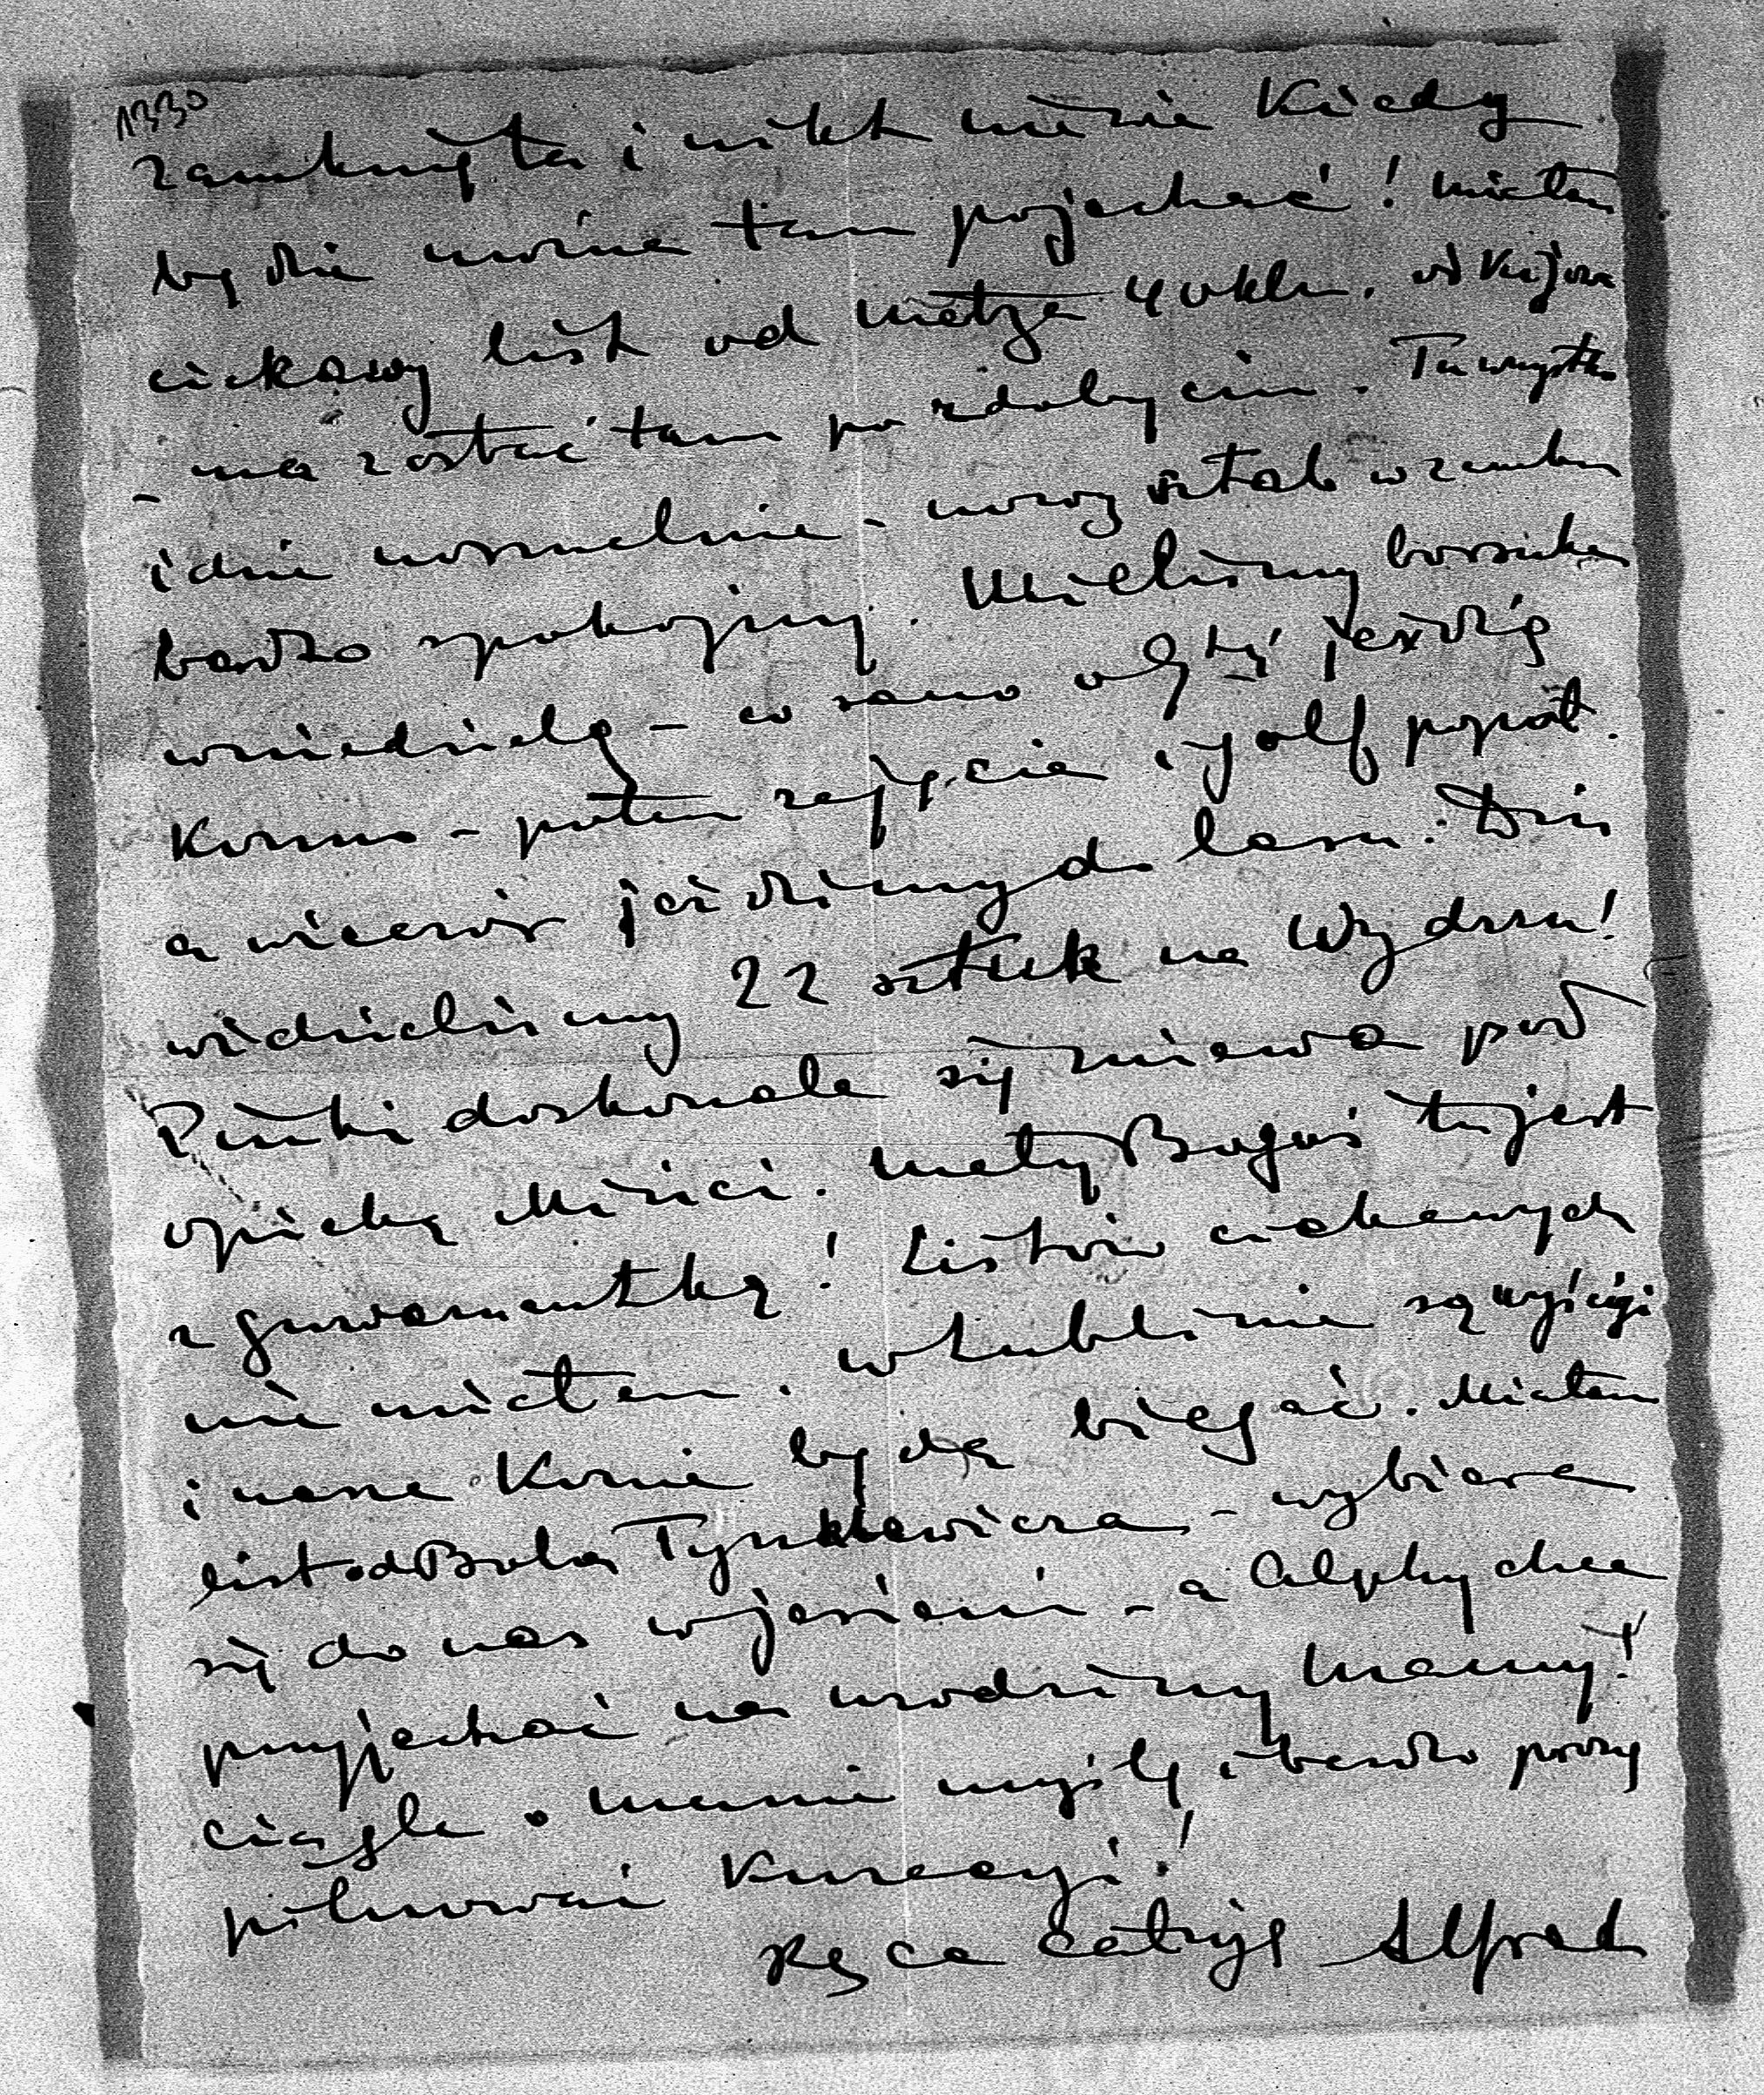 1330
zamknięta i nikt nie wie kiedy
będzie można tam pojechać! Miałem
ciekawy list od Metza 40 klm. od Kijowa
- ma zostać tam po zdobyciu. Tu wszystko
idzie normalnie - nowy sztab w zamku
bardzo spokojny. Mieliśmy
w niedzielę - co rano jeżdżę
konno - potem zajęcia i golf popoł.
a wieczór jeździmy do lasu. Dziś
widzieliśmy 22 sztuk na Wydrzu!
doskonale się miewa pod
opieką Mizici. Mały Boguś tu jest
z guwernantką! Listów ciekawych
nie miałem. W Lublinie są wyścigi
i nasze konie będą biegać. Miałem
list od Bola Tyszkiewicza - wybiera
się do nas w jesieni - a Alphy chce
przyjechać na urodziny Mamy!
Ciągle o Mamie myślę i bardzo proszę
pilnować kuracyi!
Ręce całuję Alfred